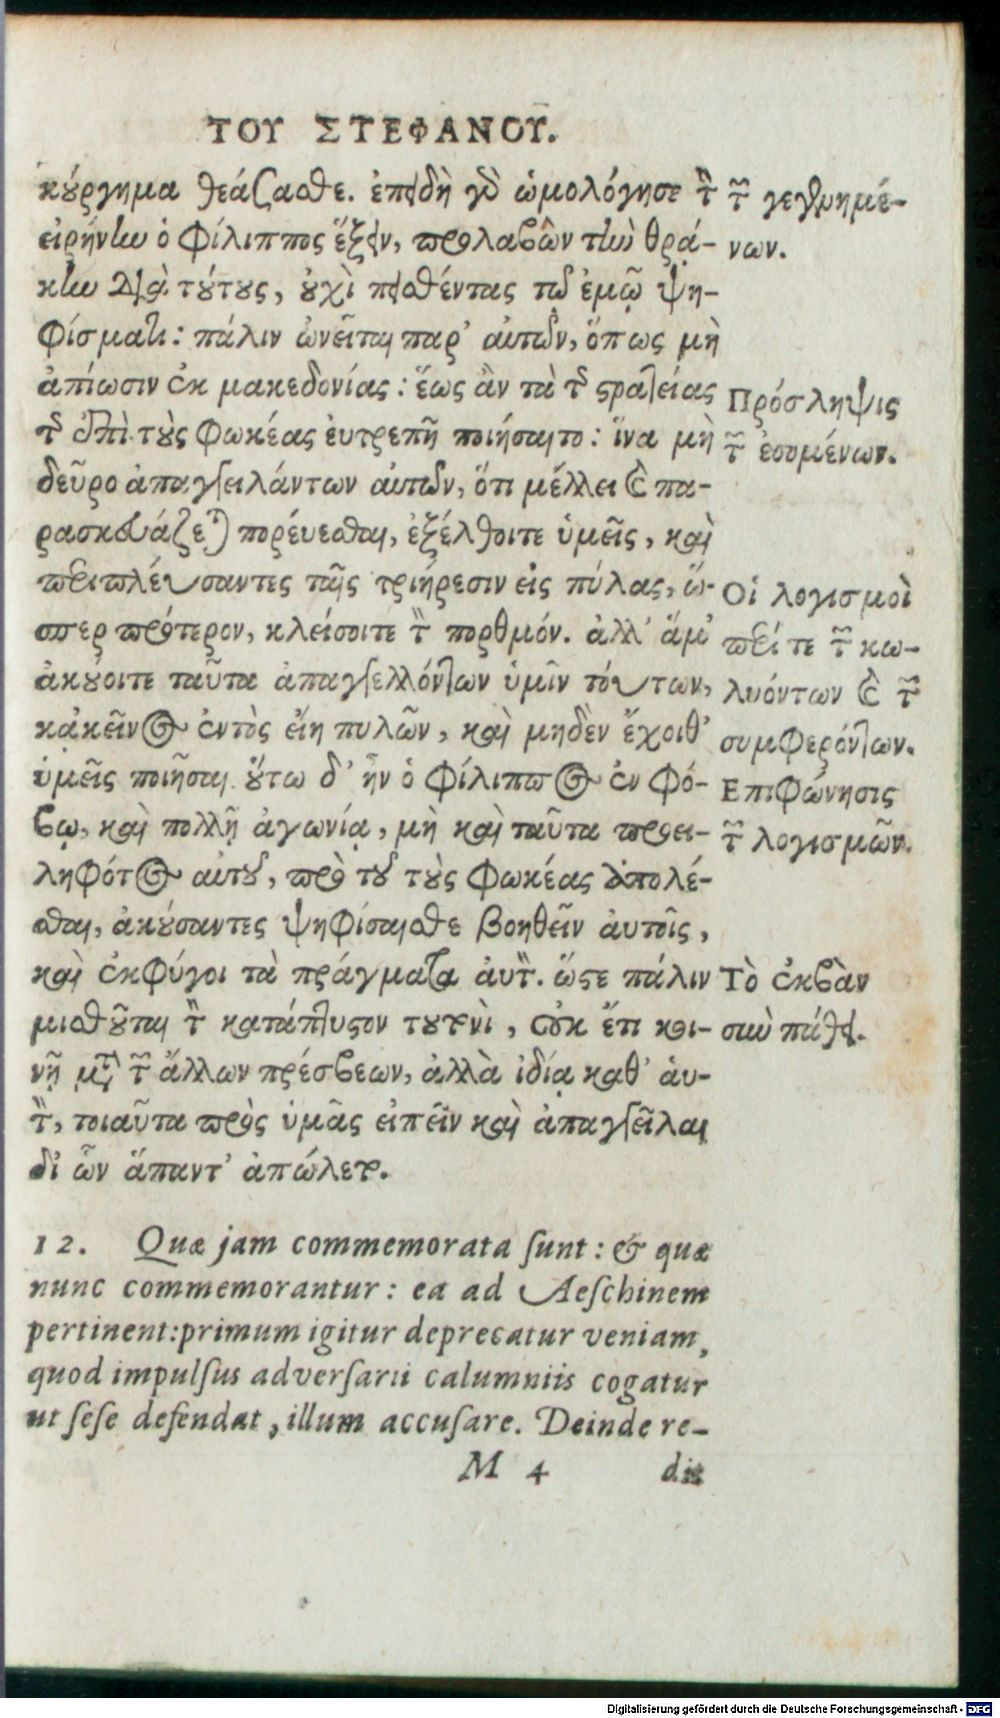 ΤΟΥ ΣΤΕΦΑΝΟΥ.
κούργημα θεάσασθε. ἐπειδὴ γὰρ ὡμολόγησε τὴν
εἰρήνην ὁ Φίλιππος ἕξειν, προλαβὼν τὴν θρά-
κην διὰ τούτους, οὐχὶ πεισθέντας τῷ ἐμῷ ψη-
φίσματι: πάλιν ὠνεῖται παρ’ αὐτῶν, ὅπως μὴ
ἀπίωσιν ἐκ μακεδονίας: ἕως ἂν τὰ τῆς στρατείας
τῆς ἐπὶ τοὺς φωκέας ἐυτρεπῆ ποιήσαιτο: ἵνα μὴ
δεῦρο ἀπαγγειλάντων αὐτῶν, ὅτι μέλλει καὶ πα-
ρασκευάζεται πορέυεσθαι, ἐξέλθοιτε ὑμεῖς, καὶ
περιπλέυσαντες ταῖς τριήρεσιν εἰς πύλας, ὥ-
σπερ πρότερον, κλείσοιτε τὸν πορθμόν. ἀλλ’ ἅμ’
ἀκούοιτε ταῦτα ἀπαγγελλόντων ὑμῖν τόυτων,
κἀκεῖνος ἐντὸς εἴη πυλῶν, καὶ μηδὲν ἔχοιθ’
ὑμεῖς ποιῆσαι. οὕτω δ’ ἦν ὁ Φίλιππος ἐν φό-
βῳ, καὶ πολλῇ ἀγωνίᾳ, μὴ καὶ ταῦτα προει-
ληφότος αὐτοῦ, πρὸ τοῦ τοὺς φωκέας ἀπολέ-
σθαι, ἀκούσαντες ψηφίσαισθε βοηθεῖν ἀυτοῖς,
καὶ ἐκφύγοι τὰ πράγματα ἀυτὸν. ὥστε πάλιν
μισθοῦται τὸν κατάπτυστον τουτονὶ, οὐκ ἔτι κοι-
νῇ μετὰ τῶν ἄλλων πρέσβεων, ἀλλὰ ἰδίᾳ καθ’ ἁυ-
τὸν, τοιαῦτα πρὸς ὑμᾶς εἰπεῖν καὶ ἀπαγγεῖλαι
δι’ ὧν ἅπαντ’ ἀπώλετο.
τῶν γεγενημέ-
νων.
Πρόσληψις
τῶν ἐσομένων.
Οἱ λογισμοὶ
περί τε τῶν κω-
λυόντων καὶ τῶν
συμφερόντων.
Επιφώνησις
τῶν λογισμῶν.
Τὸ ἐκβὰν
σὺν πάθει.
12. Quæ jam commemorata ſunt: & quæ
nunc commemorantur: ea ad Aeſchinem
pertinent: primum igitur deprecatur veniam,
quod impulſus adverſarii calumniis cogatur
ut ſeſe defendat, illum accuſare. Deinde re-
M 4 dit
Digitalisierung gefördert durch die Deutsche Forschungsgemeinschaft - DFG